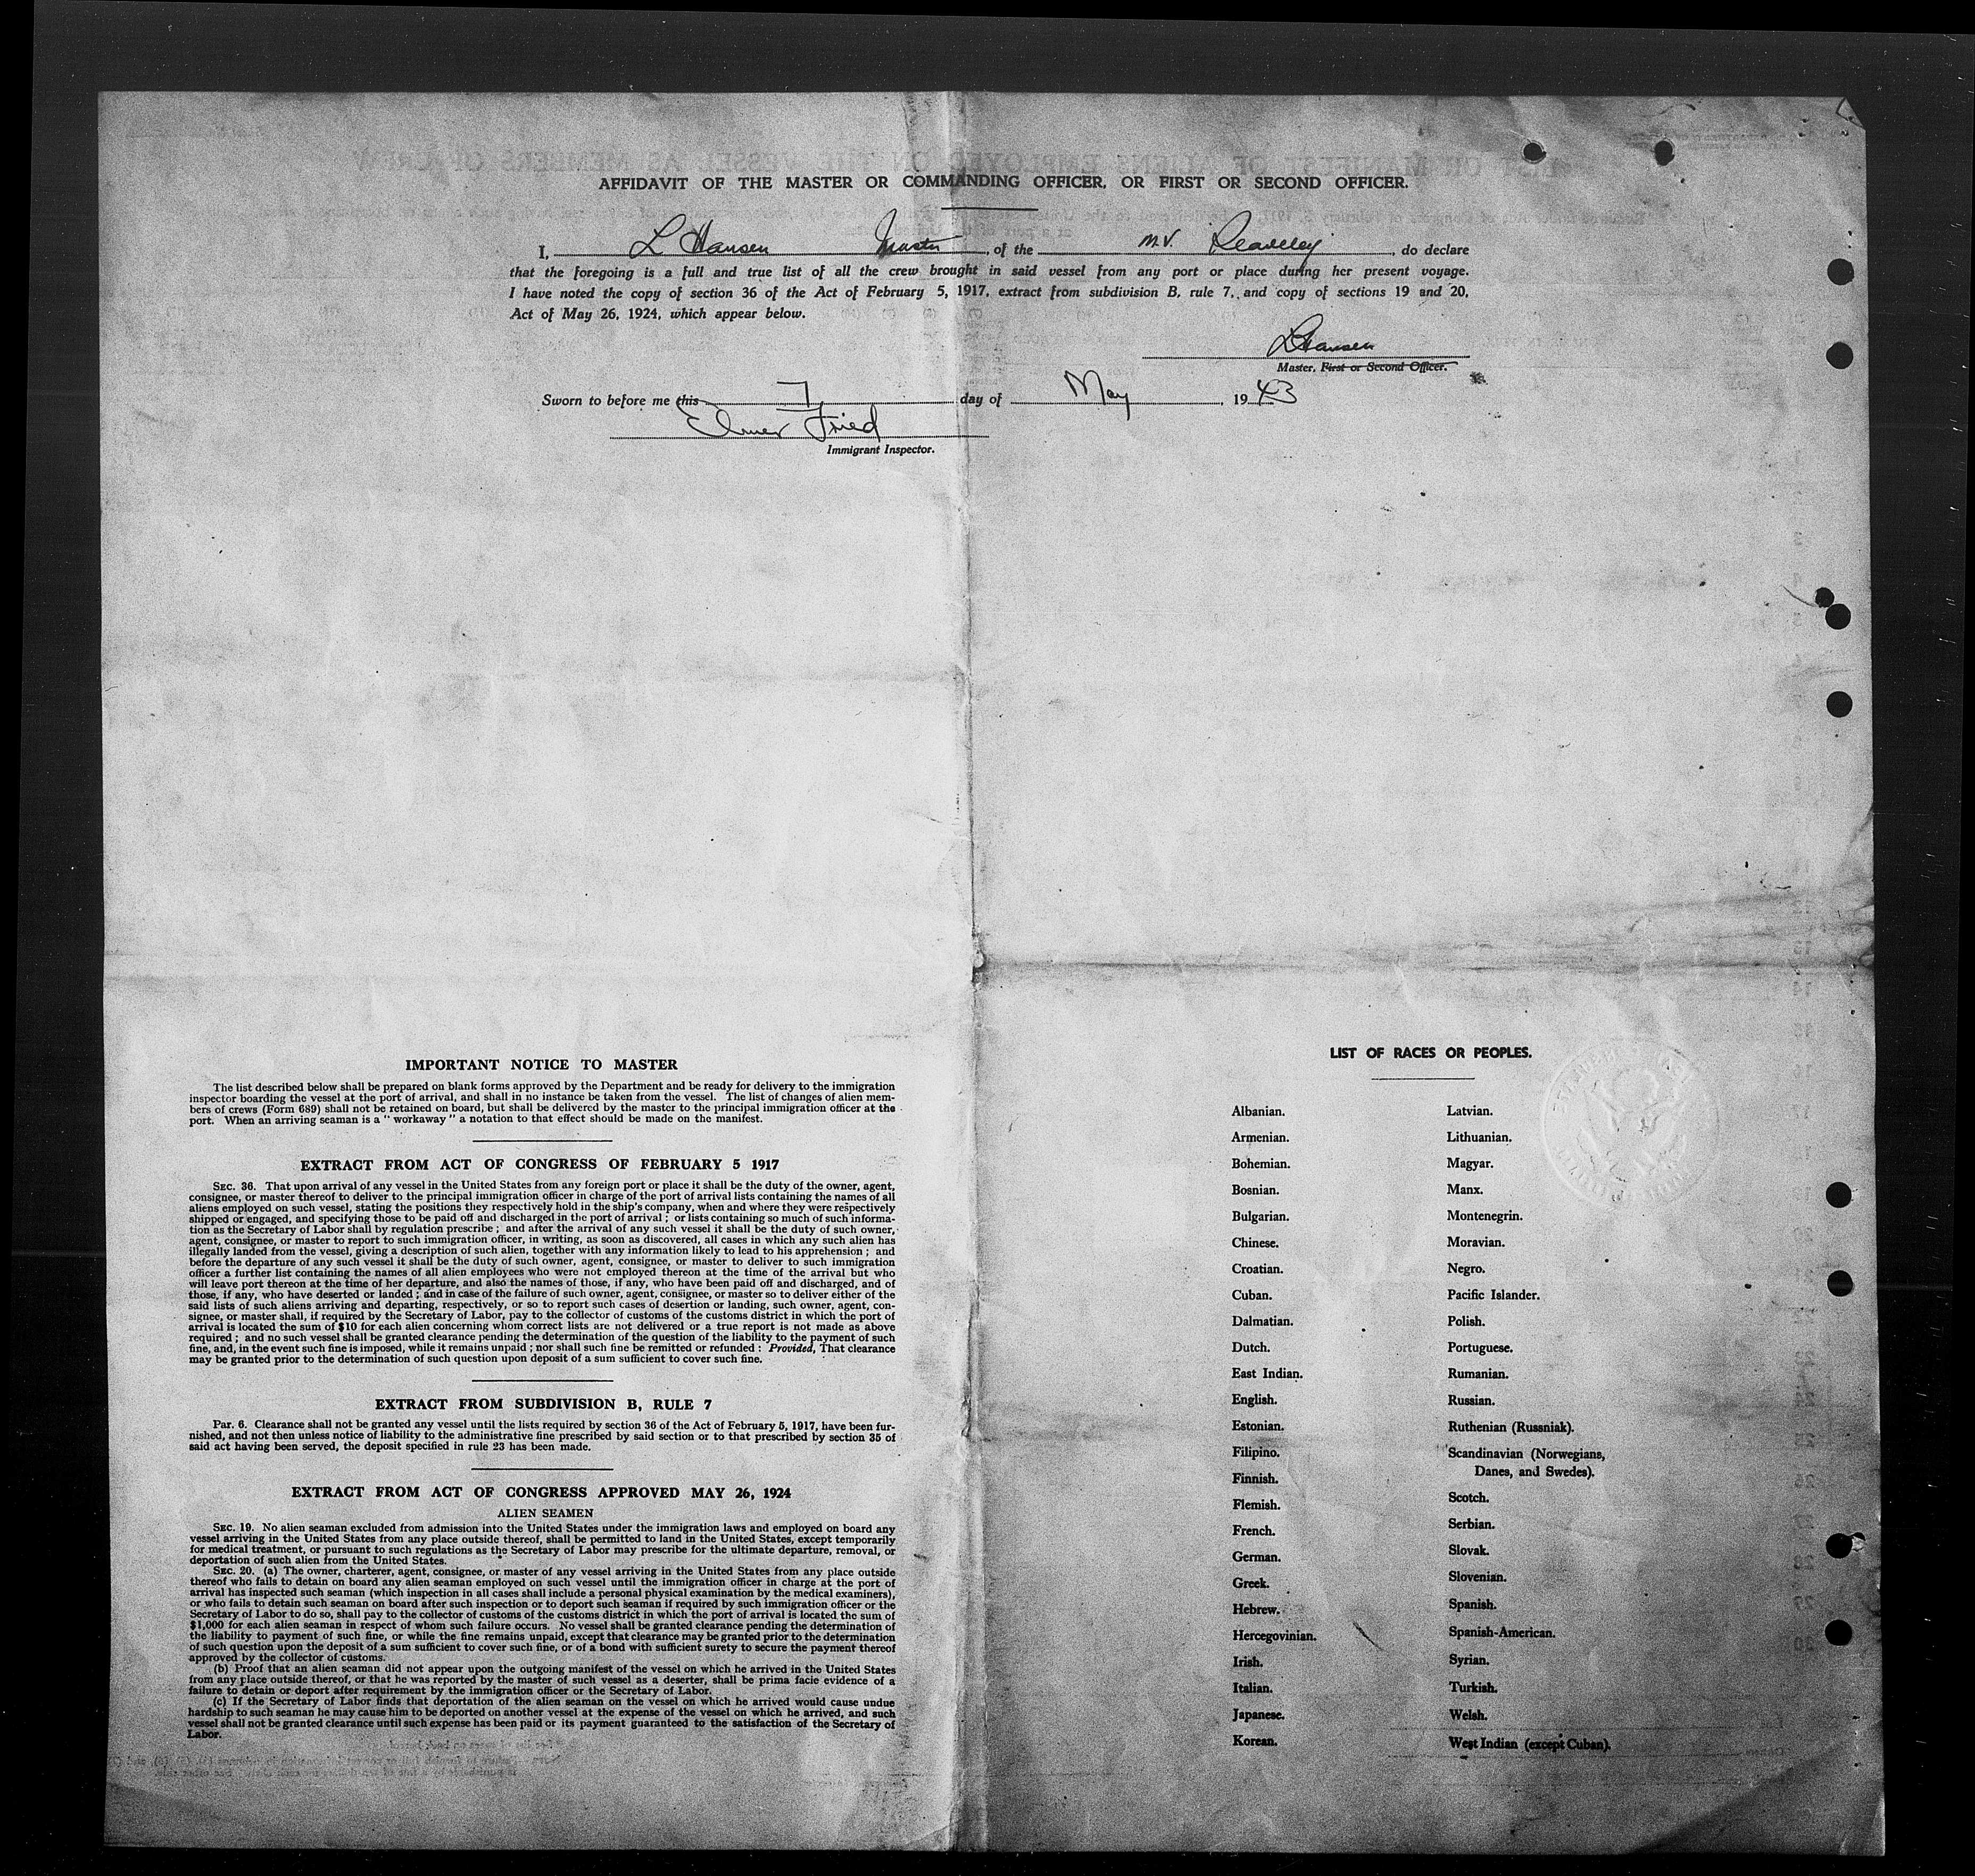 AFFIDAVIT OF THE MASTER OR COMMANDING OFFICER, OR FIRST OR SECOND OFFICER.
I, L Hansen Master, of the M.V. , do declare
that the foregoing is a full and true list of all the crew brought in said vessel from any port or place during her present voyage.
I have noted the copy of section 36 of the Act of February 5, 1917, extract from subdivision B, rule 7, and copy of sections 19 and 20,
Act of May 26, 1924, which appear below.
L Hansen
Master, First or Second Officer.
Sworn to before me this 7 day of May, 1943
Elmer Fried
Immigrant Inspector.
IMPORTANT NOTICE TO MASTER
The list described below shall be prepared on blank forms approved by the Department and be ready for delivery to the immigration
inspector boarding the vessel at the port of arrival, and shall in no instance be taken from the vessel. The list of changes of alien mem-
bers of crews (Form 689) shall not be retained on board, but shall be delivered by the master to the principal immigration officer at the
port. When an arriving seaman is a "workaway" a notation to that effect should be made on the manifest.
EXTRACT FROM ACT OF CONGRESS OF FEBRUARY 5 1917
SEC. 36. That upon arrival of any vessel in the United States from any foreign port or place it shall be the duty of the owner, agent,
consignee, or master thereof to deliver to the principal immigration officer in charge of the port of arrival lists containing the names of all
aliens employed on such vessel, stating the positions they respectively hold in the ship's company, when and where they were respectively
shipped or engaged, and specifying those to be paid off and discharged in the port of arrival; or lists containing so much of such informa-
tion as the Secretary of Labor shall by regulation prescribe; and after the arrival of any such vessel it shall be the duty of such owner,
agent, consignee, or master to report to such immigration officer, in writing, as soon as discovered, all cases in which any such alien has
illegally landed from the vessel, giving a description of such alien, together with any information likely to lead to his apprehension; and
before the departure of any such vessel it shall be the duty of such owner, agent, consignee, or master to deliver to such immigration
officer a further list containing the names of all alien employees who were not employed thereon at the time of the arrival but who
will leave port thereon at the time of her departure, and also the names of those, if any, who have been paid off and discharged, and of
those, if any, who have deserted or landed; and in case of the failure of such owner, agent, consignee, or master so to deliver either of the
said lists of such aliens arriving and departing, respectively, or so to report such cases of desertion or landing, such owner, agent, con-
signee, or master shall, if required by the Secretary of Labor, pay to the collector of customs of the customs district in which the port of
arrival is located the sum of $10 for each alien concerning whom correct lists are not delivered or a true report is not made as above
required; and no such vessel shall be granted clearance pending the determination of the question of the liability to the payment of such
fine, and, in the event such fine is imposed, while it remains unpaid; nor shall such fine be remitted or refunded: Provided, That clearance
may be granted prior to the determination of such question upon deposit of a sum sufficient to cover such fine.
EXTRACT FROM SUBDIVISION B, RULE 7
Par. 6. Clearance shall not be granted any vessel until the lists required by section 36 of the Act of February 5, 1917, have been fur-
nished, and not then unless notice of liability to the administrative fine prescribed by said section or to that prescribed by section 35 of
said act having been served, the deposit specified in rule 23 has been made.
EXTRACT FROM ACT OF CONGRESS APPROVED MAY 26, 1924
ALIEN SEAMEN
SEC. 19. No alien seaman excluded from admission into the United States under the immigration laws and employed on board any
vessel arriving in the United States from any place outside thereof, shall be permitted to land in the United States, except temporarily
for medical treatment, or pursuant to such regulations as the Secretary of Labor may prescribe for the ultimate departure, removal, or
deportation of such alien from the United States.
SEC. 20. (a) The owner, charterer, agent, consignee, or master of any vessel arriving in the United States from any place outside
thereof who fails to detain on board any alien seaman employed on such vessel until the immigration officer in charge at the port of
arrival has inspected such seaman (which inspection in all cases shall include a personal physical examination by the medical examiners),
or who fails to detain such seaman on board after such inspection or to deport such seaman if required by such immigration officer or the
Secretary of Labor to do so, shall pay to the collector of customs of the customs district in which the port of arrival is located the sum of
$1,000 for each alien seaman in respect of whom such failure occurs. No vessel shall be granted clearance pending the determination of
the liability to payment of such fine, or while the fine remains unpaid, except that clearance may be granted prior to the determination
of such question upon the deposit of a sum sufficient to cover such fine, or of a bond with sufficient surety to secure the payment thereof
approved by the collector of customs.
(b) Proof that an alien seaman did not appear upon the outgoing manifest of the vessel on which he arrived in the United States
from any place outside thereof, or that he was reported by the master of such vessel as a deserter, shall be prima facie evidence of a
failure to detain or deport after requirement by the immigration officer or the Secretary of Labor.
(c) If the Secretary of Labor finds that deportation of the alien seaman on the vessel on which he arrived would cause undue
hardship to such seaman he may cause him to be deported on another vessel at the expense of the vessel on which he arrived, and such
vessel shall not be granted clearance until such expense has been paid or its payment guaranteed to the satisfaction of the Secretary of
Labor.
LIST OF RACES OR PEOPLES.
Albanian.
Armenian.
Bohemian.
Bosnian.
Bulgarian.
Chinese.
Croatian.
Cuban.
Dalmatian.
Dutch.
East Indian.
English.
Estonian.
Filipino.
Finnish.
Flemish.
French.
German.
Greek.
Hebrew.
Hercegovinian.
Irish.
Italian.
Japanese.
Korean.
Latvian.
Lithuanian.
Magyar.
Manx.
Montenegrin.
Moravian.
Negro.
Pacific Islander.
Polish.
Portuguese.
Rumanian.
Russian.
Ruthenian (Russniak).
Scandinavian (Norwegians,
Danes, and Swedes).
Scotch.
Serbian.
Slovak.
Slovenian.
Spanish.
Spanish-American.
Syrian.
Turkish.
Welsh.
West Indian (except Cuban).